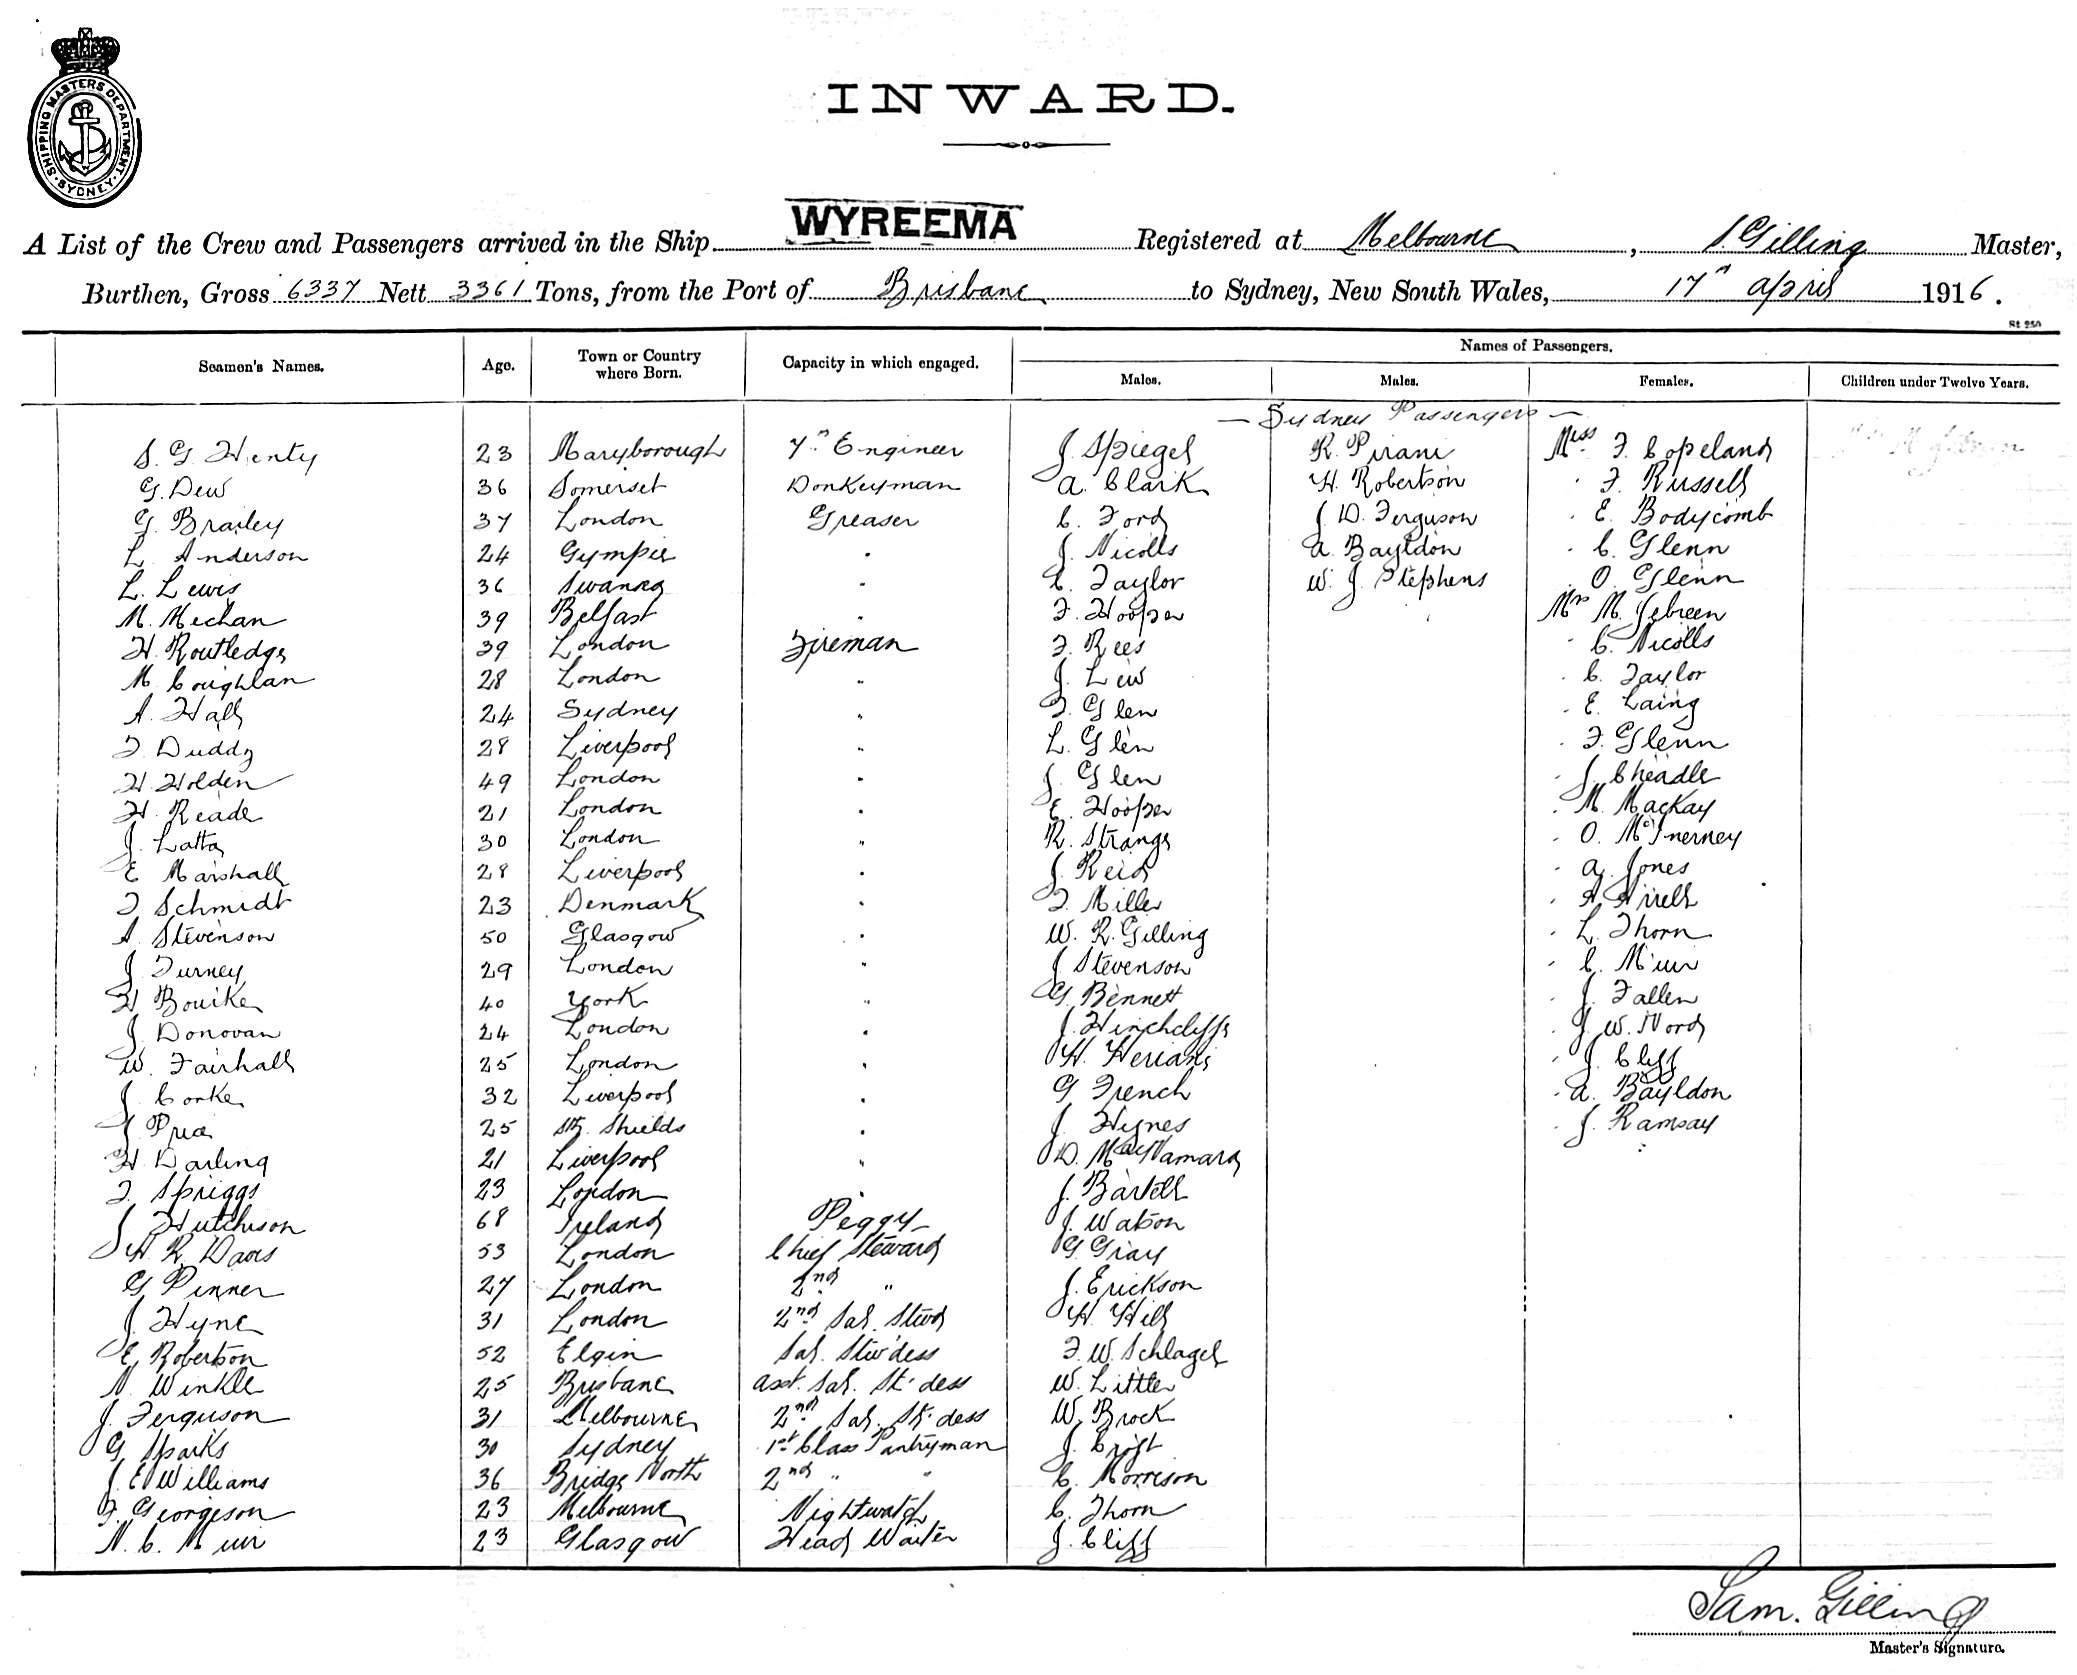 SHIPPING MASTERS DEPARTMENT. SYDNEY.
INWARD.
A List of the Crew and Passengers arrived in the Ship WYREEMA Registered at Melbourne, S. Gilling Master,
Burthen, Gross 6337 Nett 3361 Tons, from the Port of Brisbane to Sydney, New South Wales, 17th April 1916.
St 250
Seamen's Names. Age. Town or Country where Born. Capacity in which engaged. Names of Passengers.
Males. Males. Females. Children under Twelve Years.
— Sydney Passengers —
S. G. Henty 23 Maryborough 7th Engineer J. Spiegel R. Pirani Miss F. Copeland
G. Dew 36 Somerset Donkeyman A. Clark H. Robertson " F. Russell
G. Brailey 37 London Greaser C. Ford J. D. Ferguson " E. Bodycomb
L. Anderson 24 Gympie " J. Nicolls A. Bayldon " C. Glenn
L. Lewis 36 Swansea " C. Taylor W. J. Stephens " O. Glenn
M. Mechan 39 Belfast " F. Hooper Mrs M. Jebreen
H. Routledge 39 London Fireman F. Rees " C. Nicolls
M. Coughlan 28 London " J. Lew " C. Taylor
A. Hall 24 Sydney " F. Glen " E. Laing
F. Duddy 28 Liverpool " L. Glen " F. Glenn
H. Holden 49 London " J. Glen " J. Cheadle
H. Reade 21 London " E. Hooper " M. MacKay
J. Latta 30 London " R. Strange " O. McInerney
E. Marshall 28 Liverpool " J. Reid " A. Jones
F. Schmidt 23 Denmark " F. Miller "
A. Stevenson 50 Glasgow " W. R. Gilling " L. Thorn
J. Turney 29 London " J. Stevenson " C. Muir
H. Bourke 40 York " G. Bennett " J. Fallen
J. Donovan 24 London " J. Hinchcliffe " J. W. Nord
W. Fairhall 25 London " H. " J. Cliff
J. Corke 32 Liverpool " G. French " A. Bayldon
J. Price 25 Sth. Shields " J. Hynes " J. Ramsay
H. Darling 21 Liverpool " D. MacNamara
F. Spriggs 23 London " J. Bartell
J. Hutchison 68 Ireland Peggy J. Watson
H. R. Davis 53 London Chief Steward G. Gray
G. Pinner 27 London 2nd " J. Erickson
J. Hyne 31 London 2nd Sal. Stwd H. Hill
E. Robertson 52 Elgin Sal. Stw'dess F. W. Schlagel
N. Winkle 25 Brisbane Asst. Sal. St'dess W. Little
J. Ferguson 31 Melbourne 2nd Sal. St'dess W. Brock
G. Sparks 30 Sydney 1st Class Pantryman J. Croft
J. E. Williams 36 Bridge North 2nd " " C. Morrison
F. Georgeson 23 Melbourne Nightwatch C. Thorn
N. C. Muir 23 Glasgow Head Waiter J. Cliff
Sam. Gilling
Master's Signature.